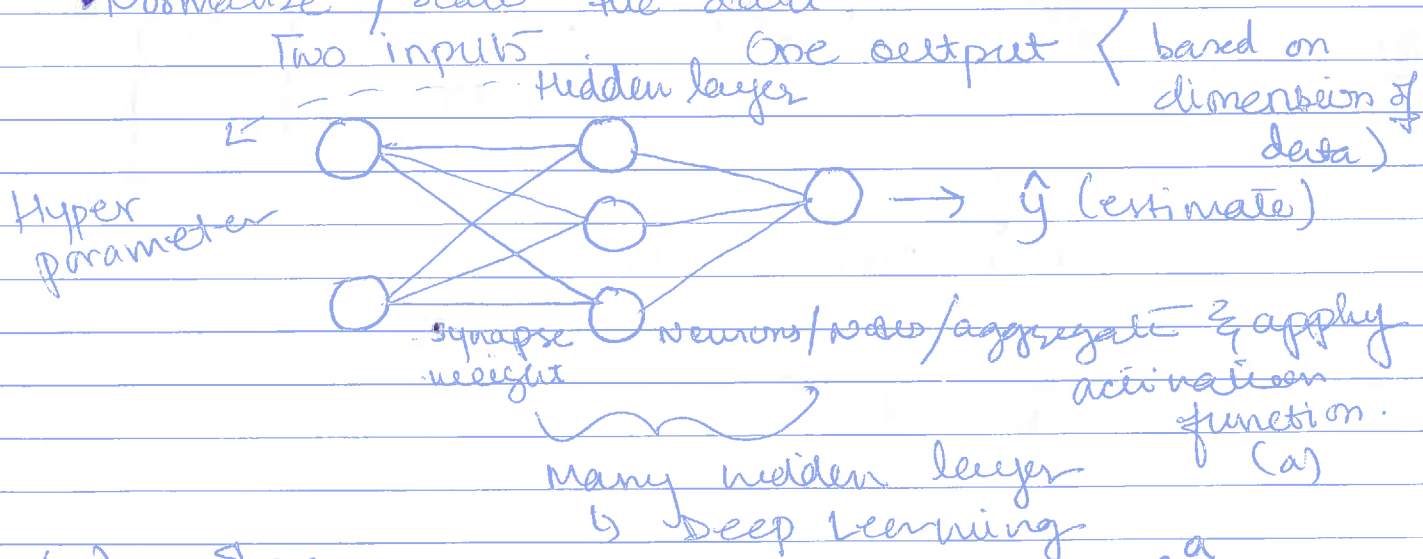 Normalize / scale the data
Two inputs One output ( based on
dimension of
data)
Hidden layer
Hyper
parameter
ŷ (estimate)
synapse
weight
Neurons/nodes/aggregate & apply
activation
function.
(a)
Many hidden layer
↳ Deep Learning
a